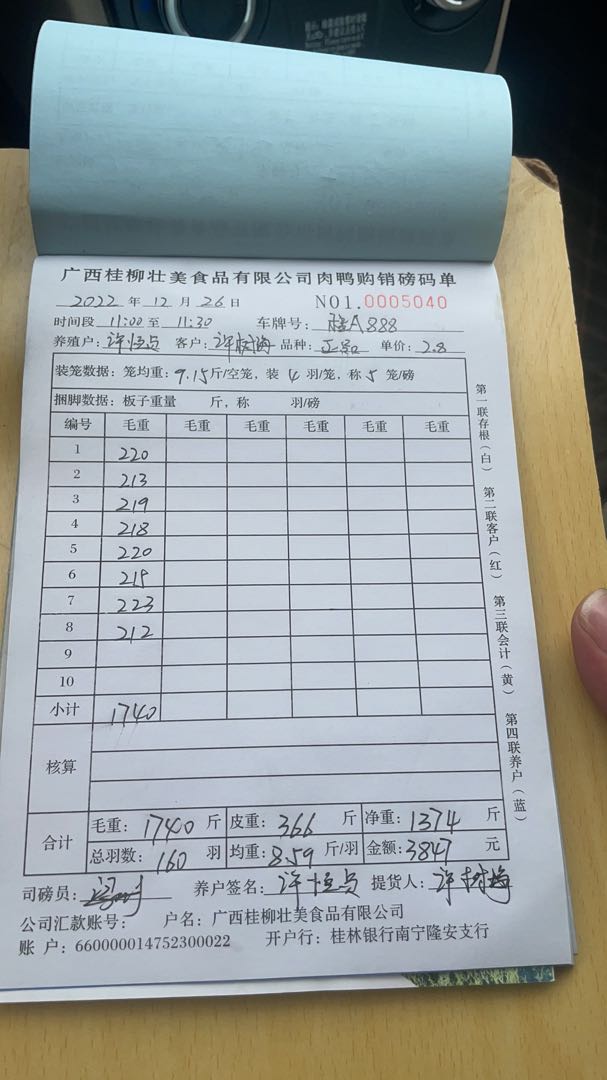 广西桂柳壮美食品有限公司肉鸭购销磅码单
2022 年 12 月 26 日 NO1.0005040
时间段 11:00 至 11:30 车牌号: 桂A888
养殖户: 许恒点 客户: 许树海 品种: 单价: 2.8
装笼数据: 笼均重: 9.15 斤/空笼, 装 4 羽/笼, 称 5 笼/磅
捆脚数据: 板子重量 斤, 称 羽/磅
编号 毛重 毛重 毛重 毛重 毛重 毛重
1 220
2 213
3 219
4 218
5 220
6 215
7 223
8 212
9
10
小计 1740
核算
合计 毛重: 1740 斤 皮重: 366 斤 净重: 1374 斤
总羽数: 160 羽 均重: 8.59 斤/羽 金额: 3847 元
司磅员: 养户签名: 许恒点 提货人: 许树海
公司汇款账号: 户名: 广西桂柳壮美食品有限公司
账 户: 660000014752300022 开户行: 桂林银行南宁隆安支行
第一联存根(白) 第二联客户(红) 第三联会计(黄) 第四联养户(蓝)